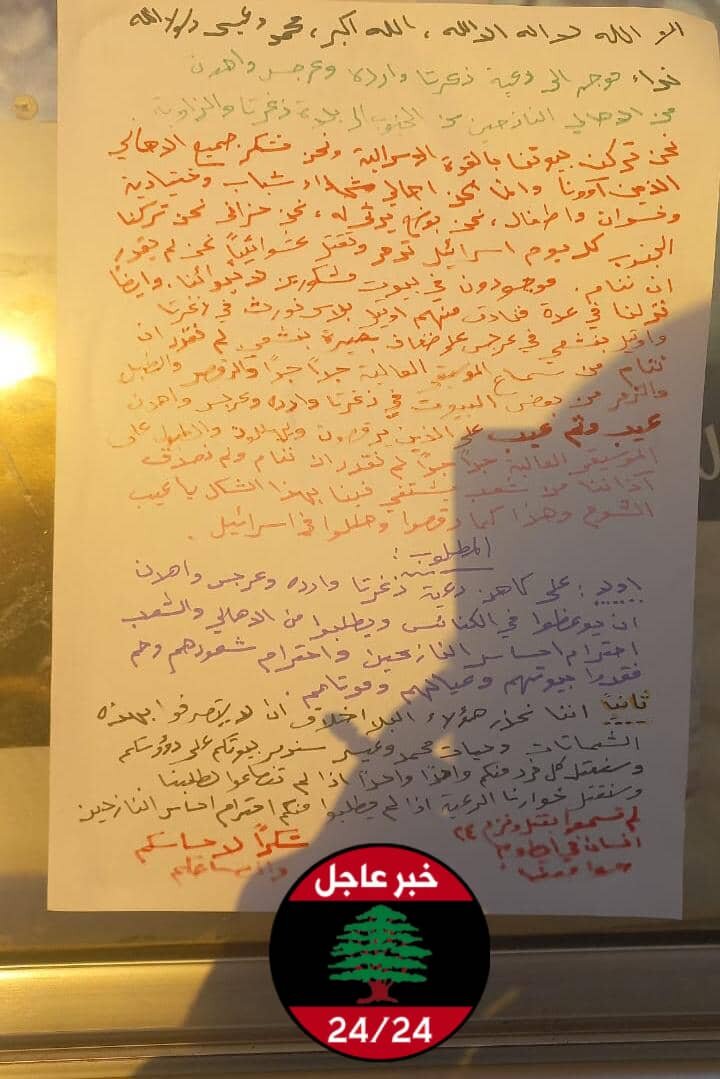 الا الله لا اله الا الله، الله اكبر، محمد وعيسى
نداء موجه الى رعية زغرتا وارده وعرجس واهدن
من الاهالي النازحين من الجنوب الى بلدة زغرتا والزاوية
نحن تركن بيوتنا بالقوة الاسرالية ونحن نشكر جميع الاهالي
الذين آوونا واننا نحن اهالي شهداء شباب وختيارية
ونسوان واطفال، نحن بوضع يرثى له، نحن حزانى نحن تركنا
الجنوب كل يوم اسرائيل تدمر وتقتل عشوائياً نحن لم نقدر
ان ننام. موجودون في بيوت مشكورين لانهم، وايضاً
نزلنا في عدة فنادق منهم اوتيل بلاس نورث في زغرتا
واوتيل بنشعي في عرجس على ضفاف بحيرة بنشعي لم نقدر ان
ننام من سماع الموسيقى العالية جداً جداً والرقص والطبل
والزمر من بعض البيوت في زغرتا وارده وعرجس واهدن
عيب وثم عيب على الذين يرقصون والطبول على
الموسيقى العالية جداً جداً لم نقدر ان ننام ولم نصدق
آذاننا من شعب يشتفي فينا بهذا الشكل يا عيب
الشوم وهذا كما رقصوا وهللوا في اسرائيل.
المطلوب:
اولا: على كاهن رعية زغرتا وارده وعرجس واهدن
ان يوعظوا في الكنائس ويطلبوا من الاهالي والشعب
احترام احساس النازحين واحترام شعورهم وهم
فقدوا بيوتهم وعيالهم وموتاهم.
ثانياً اننا نحذر هؤلاء البلا اخلاق ان لا يتصرفوا بهذه
الشماتات وحيات محمد وعيسى سندمر بيوتكم على رؤوسكم
وسنقتل كل فرد منكم واحداً واحداً اذا لم تنصاعوا لطلبنا
وسنقتل خوارنا الرعية اذا لم يطلبوا منكم احترام احساس النازحين
لم تسمعوا بقتل ٢٤ شكراً لاحساسكم
انسان في
خبر عاجل
24/24